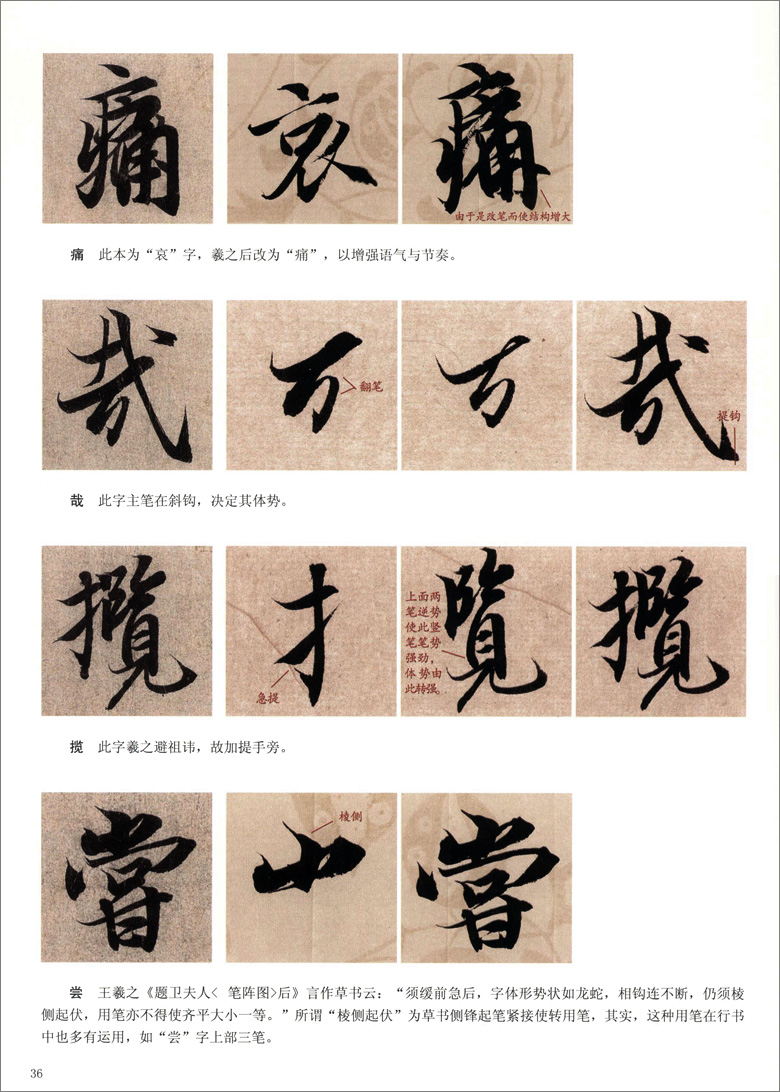 痛 哀 痛
由于是改笔而使结构增大
痛 此本为“哀”字，羲之后改为“痛”，以增强语气与节奏。
哉 哉
翻笔
提钩
哉 此字主笔在斜钩，决定其体势。
攬 扌 覽 攬
急提
上面两
笔逆势
使此竖
笔笔势
强劲，
体势由
此转强。
揽 此字羲之避祖讳，故加提手旁。
嘗 嘗
棱侧
尝 王羲之《题卫夫人< 笔阵图>后》言作草书云：“须缓前急后，字体形势状如龙蛇，相钩连不断，仍须棱
侧起伏，用笔亦不得使齐平大小一等。”所谓“棱侧起伏”为草书侧锋起笔紧接使转用笔，其实，这种用笔在行书
中也多有运用，如“尝”字上部三笔。
36